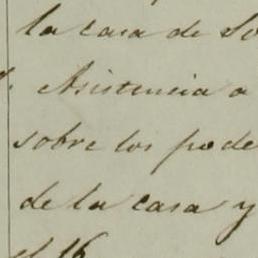 la casa de So
Asistencia a
sobre los pode
de la casa y
el 16